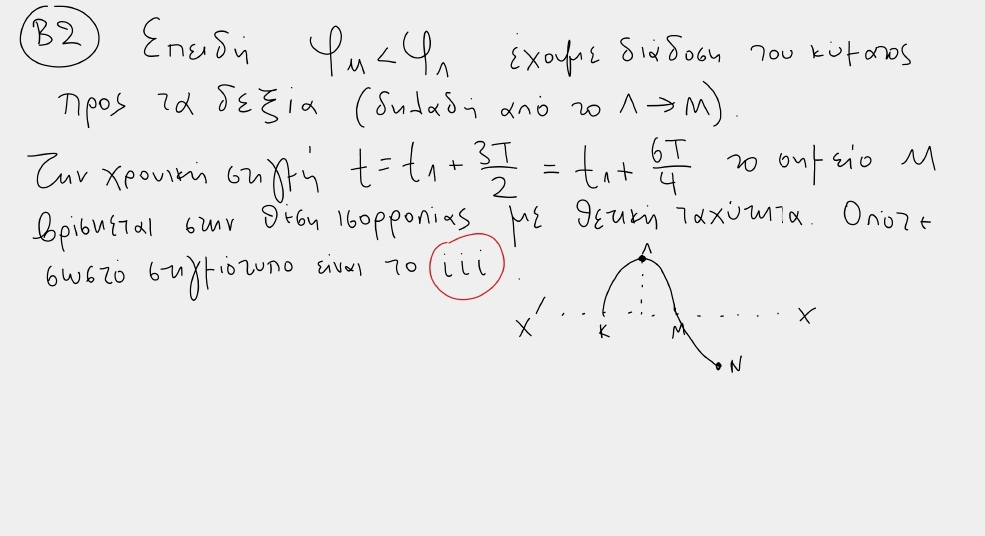 Β2 Επειδή φ_Μ < φ_Λ έχουμε διάδοση του κύματος
προς τα δεξιά (δηλαδή από το Λ → Μ).
Την χρονική στιγμή t = t₁ + 3T/2 = t₁ + 6T/4 το σημείο Μ
βρίσκεται στην θέση ισορροπίας με θετική ταχύτητα. Οπότε
σωστό στιγμιότυπο είναι το iii.
Λ
x' Κ Μ x
Ν